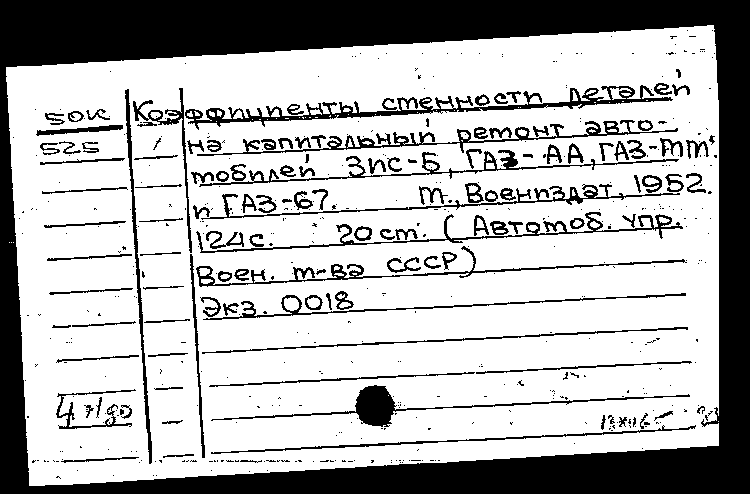 50к Коэффициенты сменности деталей
525 1 на капитальный ремонт авто-
мобилей ЗИС-5, ГАЗ-АА, ГАЗ-ММ
и ГАЗ-67. М., Воениздат, 1952.
124с. 20 см. (Автомоб. упр.
Воен. м-ва СССР)
Экз. 0018